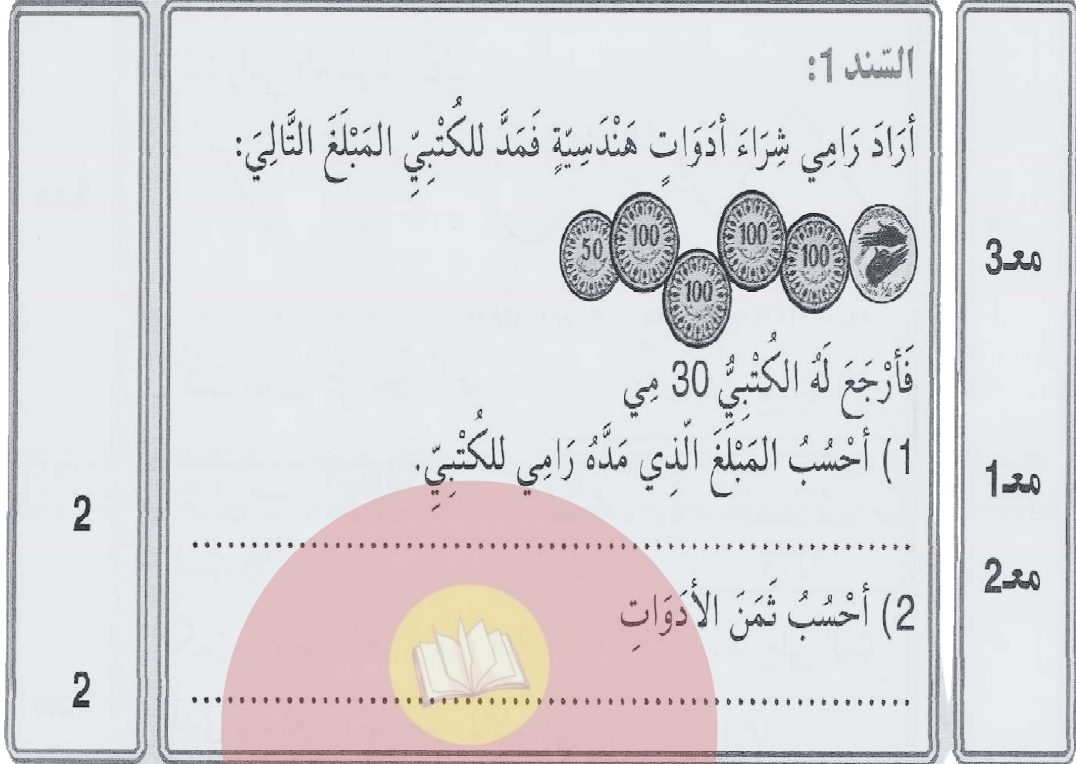 السّند 1:
أرَادَ رَامِي شِرَاءَ أدَوَاتٍ هَنْدَسِيّةٍ فَمَدَّ للكُتْبِيِّ المَبْلَغَ التَّالِيَ:
50 100 100 100 100
فَأرْجَعَ لَهُ الكُتْبِيُّ 30 مِي
معـ3
1) أحْسُبُ المَبْلَغَ الّذِي مَدَّهُ رَامِي للكُتْبِيِّ.
معـ1
2
2) أحْسُبُ ثَمَنَ الأدَوَاتِ
معـ2
2